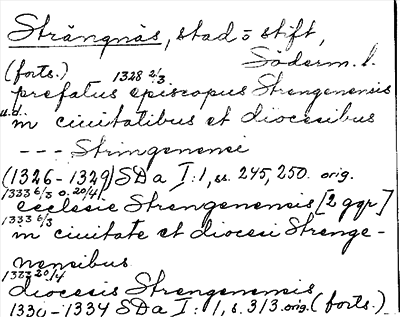 Strängnäs, stad o stift,
Söderm. l.
(forts.) 1328 2/3
prefatus episcopus Strengenensis
u.d.
in ciuitatibus et diocesibus
--- Stringenensi
(1326-1329) SD a I:1, ss. 245, 250. orig.
1333 6/3 o. 20/4
ecclesie Strengenensis [2 ggr]
1333 6/3
in ciuitate et diocesi Strenge-
nensibus
1333 20/4
diocesis Strengenensis
1330-1334 SD a I:1, s. 313. orig. (forts.)